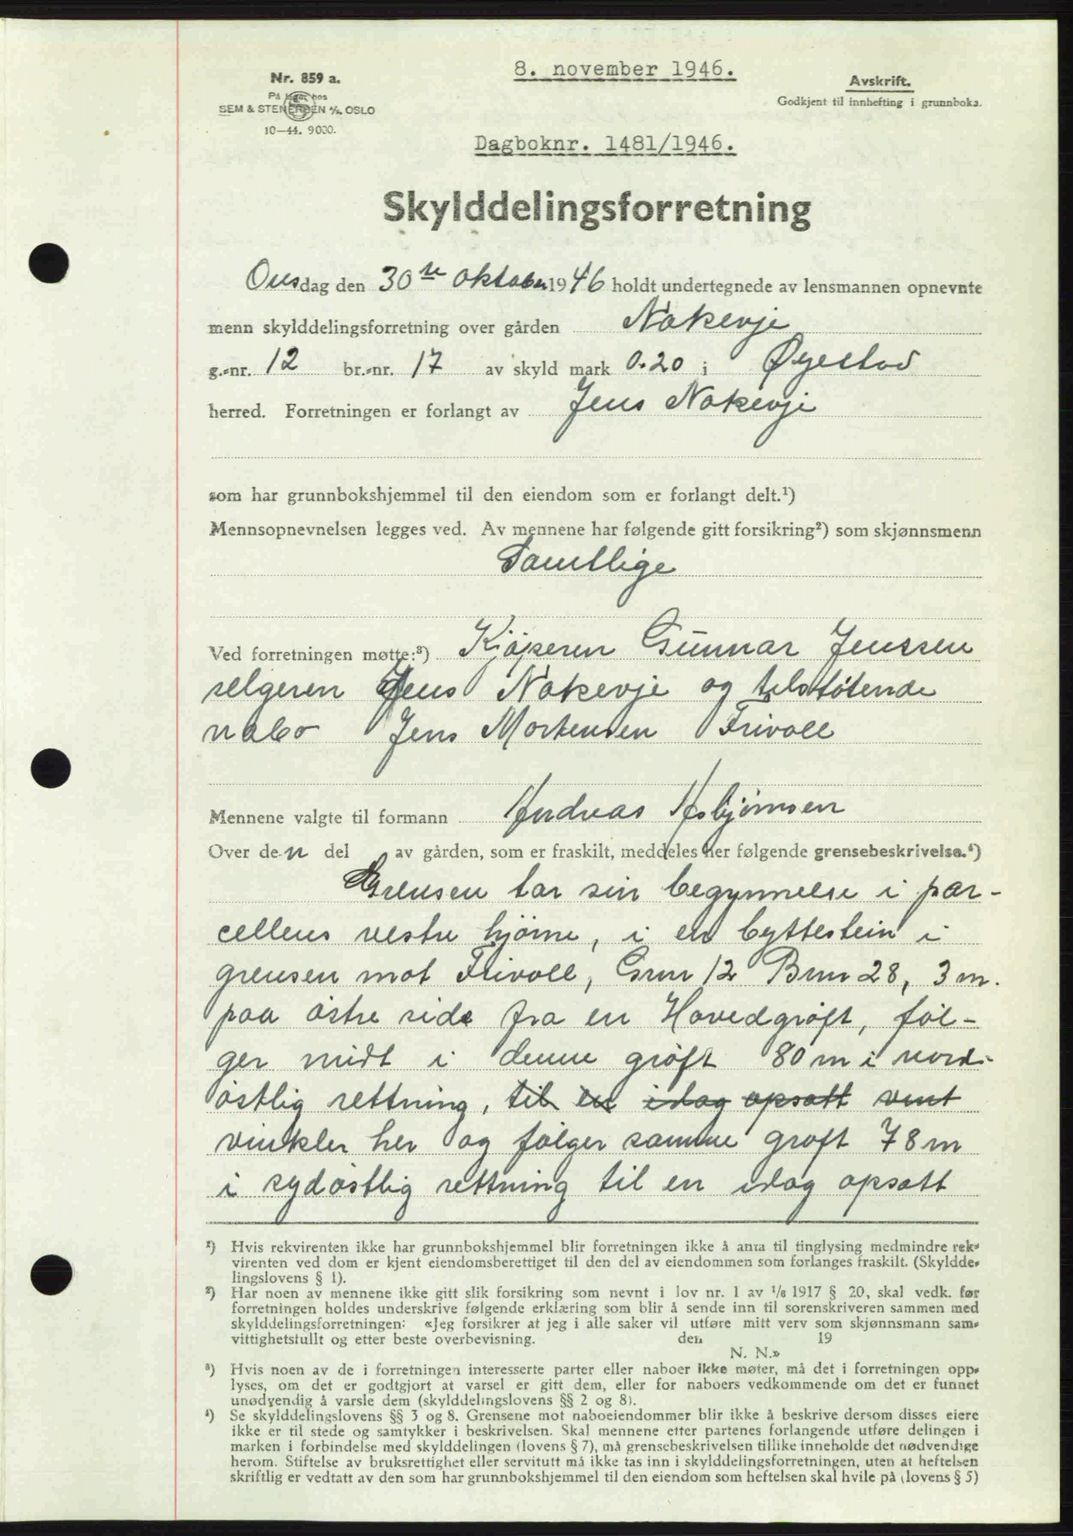 8. november 1946.
Nr. 859 a.
På lager hos
SEM & STENERSEN A/S, OSLO
10-44. 9000.
Avskrift.
Godkjent til innhefting i grunnboka.
Dagboknr. 1481/1946.
Skylddelingsforretning
Onsdag den 30te oktober 1946 holdt undertegnede av lensmannen opnevnte
menn skylddelingsforretning over gården Nakevje
g.-nr. 12 br.-nr. 17 av skyld mark 0.20 i Øyestad
herred. Forretningen er forlangt av Jens Nakevje
som har grunnbokshjemmel til den eiendom som er forlangt delt.¹)
Mennsopnevnelsen legges ved. Av mennene har følgende gitt forsikring²) som skjønnsmenn
Samtlige
Ved forretningen møtte:³) Kjøperen Gunnar Jenssen
selgeren Jens Nakevje og tilstøtende
nabo Jens Mortensen Frivoll
Mennene valgte til formann Andreas Asbjørnsen
Over den del av gården, som er fraskilt, meddeles her følgende grensebeskrivelse.⁴)
Grensen tar sin begynnelse i par-
cellens vestre hjørne, i en byttestein i
grensen mot Frivoll, Gnr 12 Bnr 28, 3 m.
paa østre side fra en Hovedgrøft, føl-
ger midt i denne grøft 80 m i nord-
østlig rettning, til en idag opsatt vint
vinkler her og følger samme grøft 78 m
i sydøstlig rettning til en idag opsatt
¹) Hvis rekvirenten ikke har grunnbokshjemmel blir forretningen ikke å anta til tinglysing medmindre rek-
virenten ved dom er kjent eiendomsberettiget til den del av eiendommen som forlanges fraskilt. (Skyldde-
lingslovens § 1).
²) Har noen av mennene ikke gitt slik forsikring som nevnt i lov nr. 1 av 1/6 1917 § 20, skal vedk. før
forretningen holdes underskrive følgende erklæring som blir å sende inn til sorenskriveren sammen med
skylddelingsforretningen: «Jeg forsikrer at jeg i alle saker vil utføre mitt verv som skjønnsmann sam-
vittighetsfullt og etter beste overbevisning. den 19
N. N.»
³) Hvis noen av de i forretningen interesserte parter eller naboer ikke møter, må det i forretningen opp-
lyses, om det er godtgjort at varsel er gitt dem, eller for naboers vedkommende om det er funnet
unødvendig å varsle dem (skylddelingslovens §§ 2 og 8).
⁴) Se skylddelingslovens §§ 3 og 8. Grensene mot naboeiendommer blir ikke å beskrive dersom disses eiere
ikke er til stede og samtykker i beskrivelsen. Skal mennene etter partenes forlangende utføre delingen i
marken i forbindelse med skylddelingen (lovens § 7), må grensebeskrivelsen tillike inneholde det nødvendige
herom. Stiftelse av bruksrettighet eller servitutt må ikke tas inn i skylddelingsforretningen, uten at heftelsen
skriftlig er vedtatt av den som har grunnbokshjemmel til den eiendom som heftelsen skal hvile på (lovens § 5)